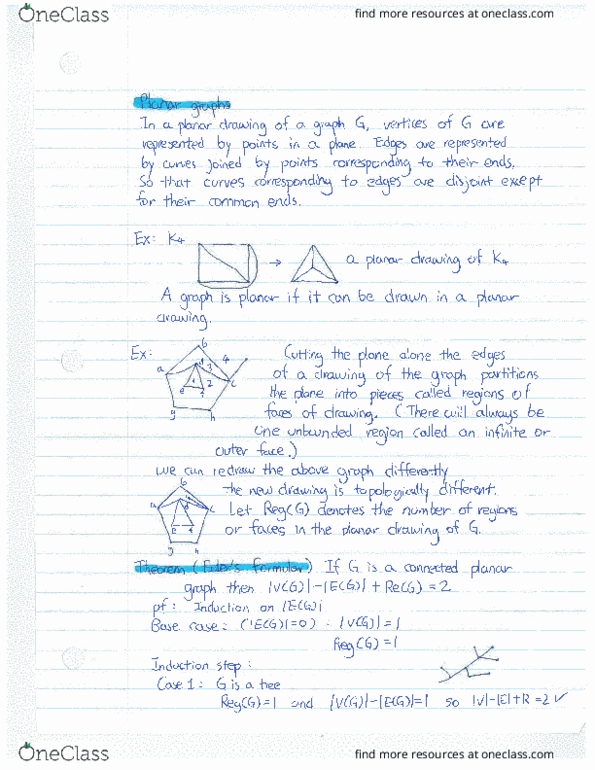 OneClass
find more resources at oneclass.com
Planar graphs
In a planar drawing of a graph G, vertices of G are
represented by points in a plane. Edges are represented
by curves joined by points corresponding to their ends,
So that curves corresponding to edges are disjoint except
for their common ends.
Ex: K4
→ a planar drawing of K4
A graph is planar if it can be drawn in a planar
drawing.
Ex:
Cutting the plane alone the edges
of a drawing of the graph partitions
the plane into pieces called regions of
faces of drawing. (There will always be
one unbounded region called an infinite or
outer face.)
we can redraw the above graph differently
The new drawing is topologically different.
Let Reg(G) denotes the number of regions
or faces in the planar drawing of G.
Theorem (Euler's formular) If G is a connected planar
graph then |V(G)|-|E(G)| + Re(G) = 2
pf: Induction on |E(G)|
Base case: (|E(G)|=0) : |V(G)| = 1
Reg(G) = 1
Induction step:
Case 1: G is a tree
Reg(G)=1 and |V(G)|-|E(G)|=1 so |V|-|E|+R=2 ✓
OneClass
find more resources at oneclass.com